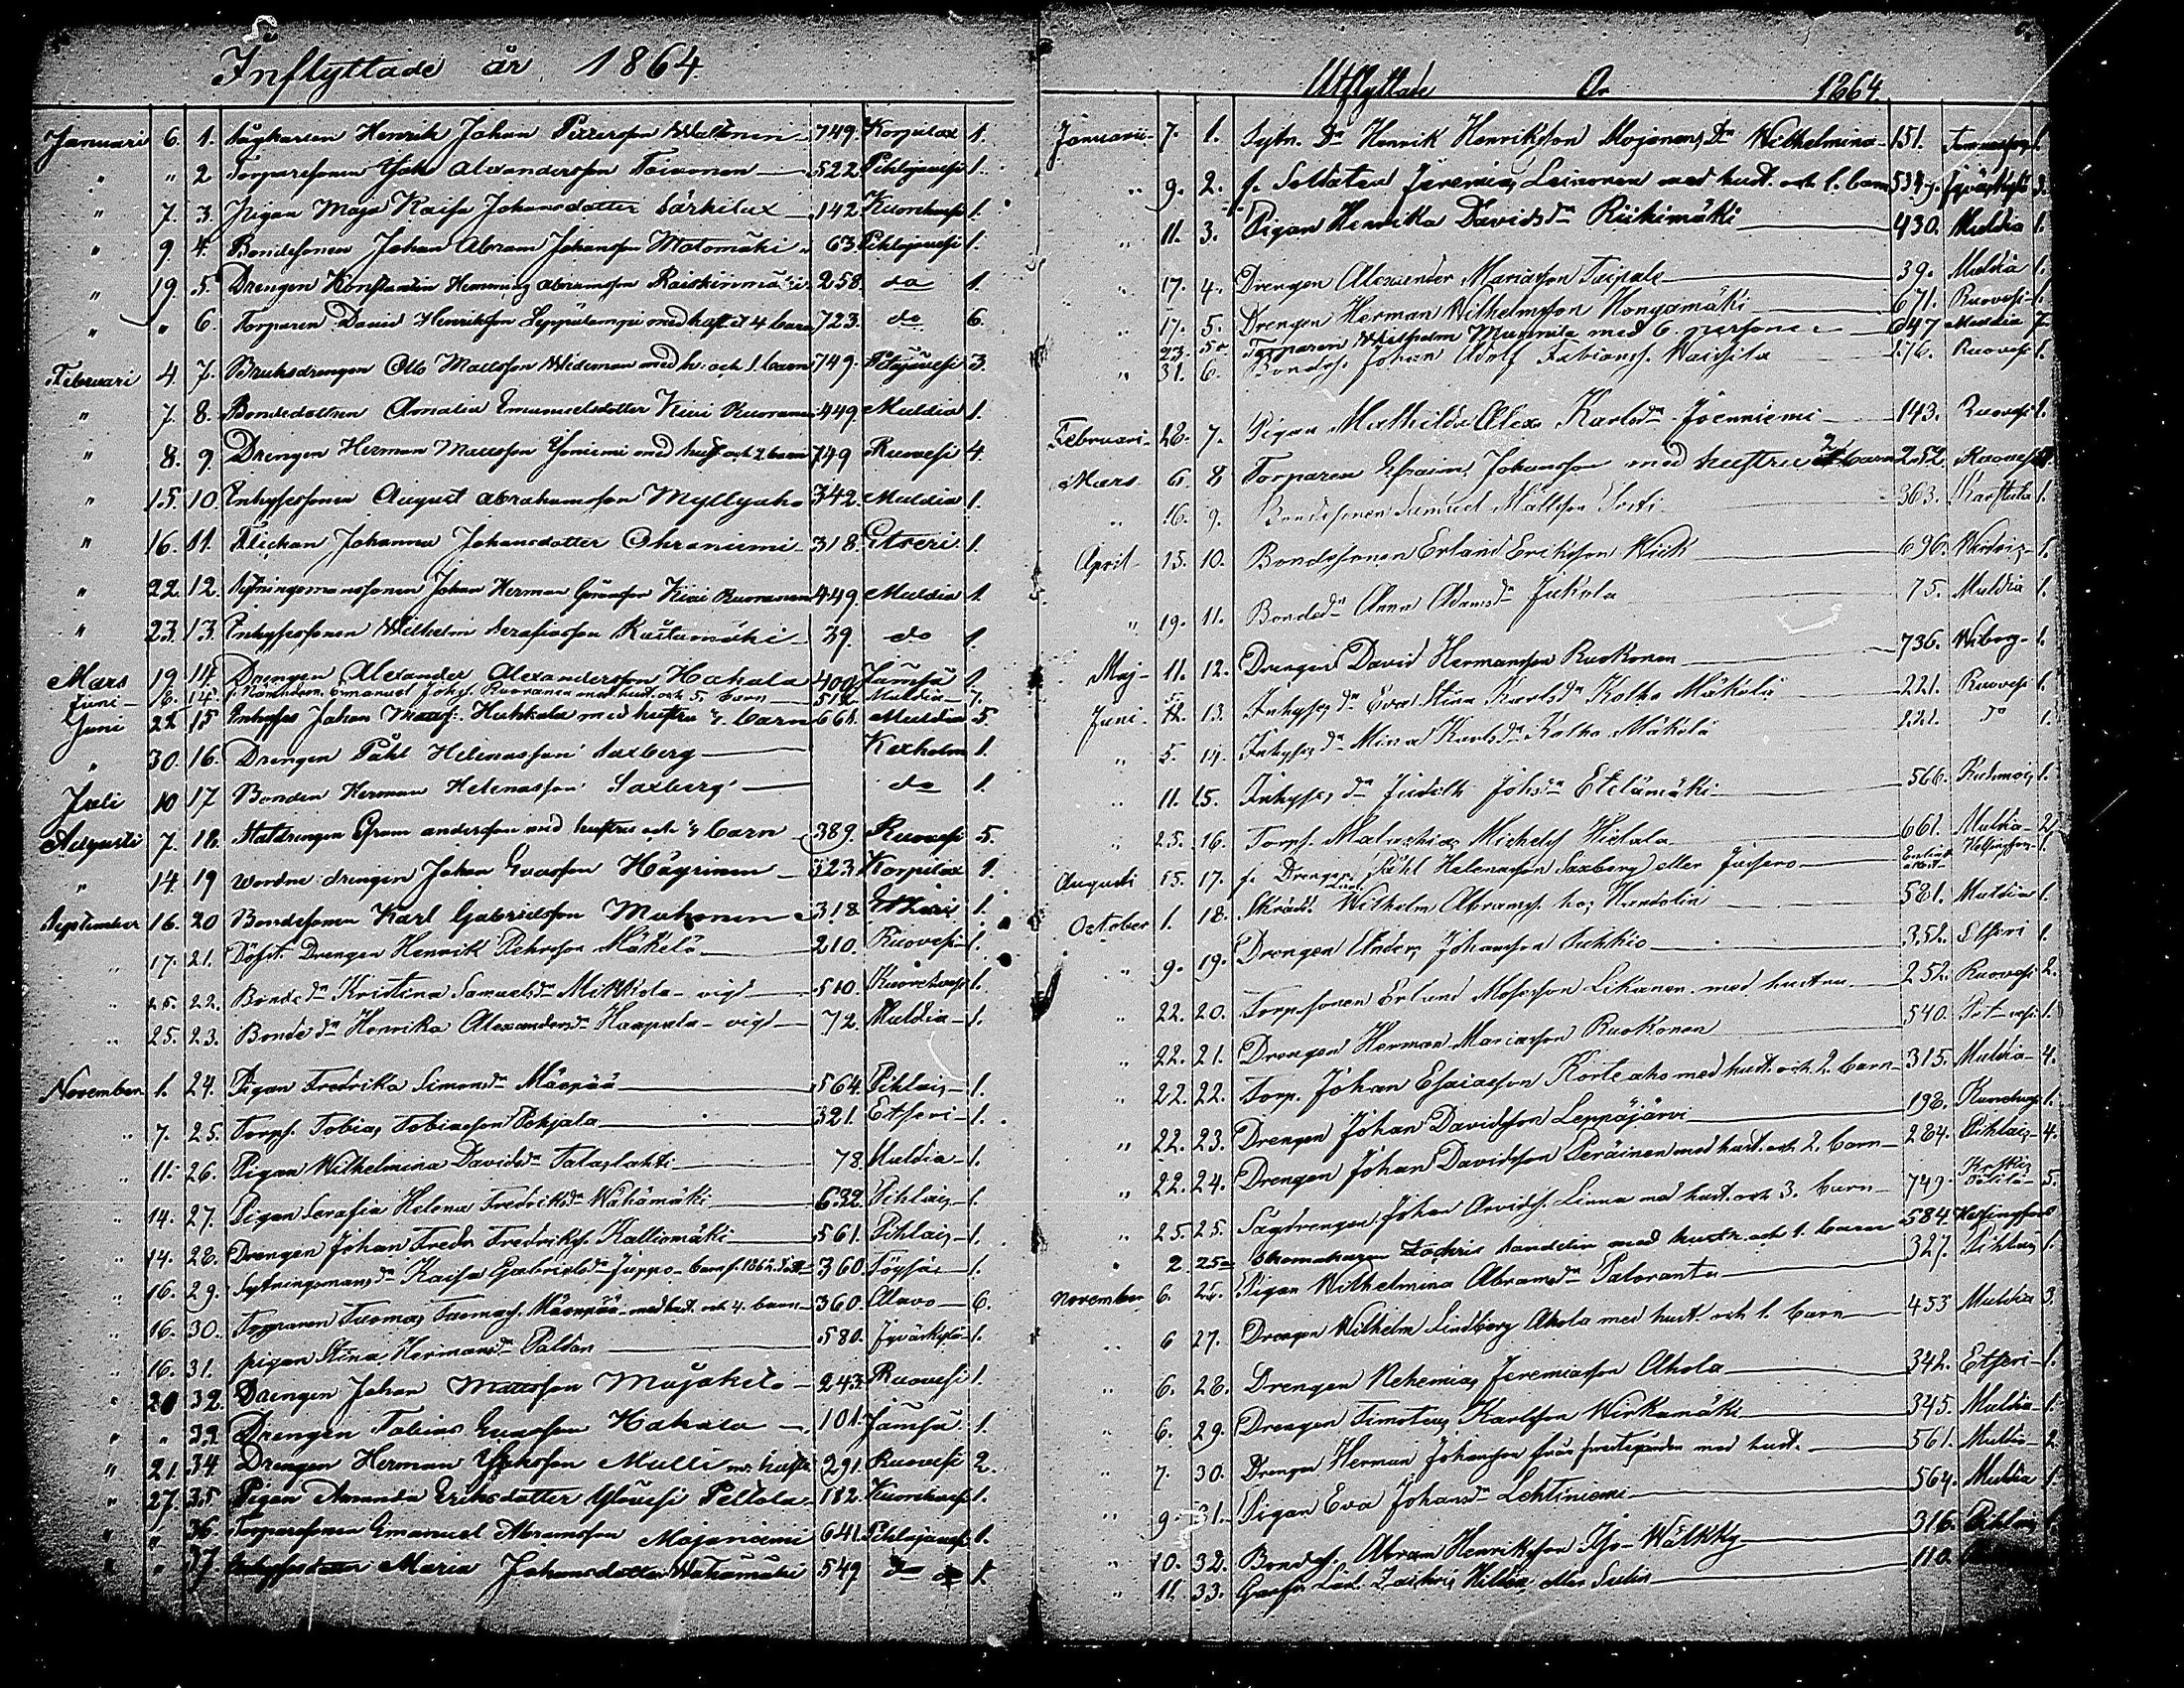 Inflyttade år 1864
Januari 6. 1. Sågkarlen Henrik Johan Pettersson Waltonen 749. Korpilax 1.
" " 2 Torparesonen Isak Alexandersson Toivonen 522 Pihlajavesi 1.
" 7. 3. Pigan Maja Kaisa Johansdotter Särkilax 142 Kuorehvesi 1.
" 9 4. Bondesonen Johan Abram Johansson Matomäki 63 Pihlajavesi 1.
" 19. 5. Drengen Konstantin Henning Abramsson Raiskinmäki 258. do 1.
" " 6. Torparen David Henriksson Leppälampi med hust. o 4 barn 723. do 6.
Februari 4. 7. Bruksdrengen Otto Mattsson Wideman med h. och 1. barn 749. Petäjävesi 3.
" 7. 8. Bondedottren Amalia Emanuelsdotter Kivi Ruoranen 449. Muldia 1.
" 8. 9. Drengen Herman Mattsson Isoniemi med hust. och 2. barn 749 Ruovesi 4.
" 15. 10. Inhysessonen August Abrahamsson Myllyaho 342. Muldia 1.
" 16. 11. Flickan Johanna Johansdotter Ohraniemi 318. Etseri 1.
" 22. 12. Sytningsmanssonen Johan Herman Göransson Kivi Ruoranen 449. Muldia 1.
" 23. 13. Inhysessonen Wilhelm Serafiasson Rustamäki 39. do 1.
Mars 19 14. Drengen Alexander Alexandersson Hakala 400 Jämsä 1.
Juni 16. 14½ Emanuel Johs. Ruoranen med hust. och 5. barn 512 Muldia 7.
Juni 22 15 Inhyses Johan Huhkala med hustru 3 barn 661. Muldia 5.
" 30. 16. Drengen Påhl Helenasson Saxberg Kexholm 1.
Juli 10 17 Bonden Herman Helenasson Saxberg do 1.
Augusti 7. 18. Statdrengen Efraim Andersson med hustru och 3 barn 389. Ruovesi 5.
" 14. 19 Wordne drengen Johan Evasson Häyrinen 323 Korpilax 1.
September 16. 20 Bondesonen Karl Gabrielsson Mahonen 318 Etseri 1.
" 17. 21. Drengen Henrik Pehrsson Mäkelä 210. Ruovesi 1.
" 25. 22. Bonde dr Kristina Samuelsdr Mikkola - vigd 510. Kuorehvesi 1.
" 25. 23. Bonde dr Henrika Alexandersdr Haapala - vigd 72. Muldia 1.
November 1. 24. Pigan Fredrika Simonsdr Mäenpää 564. Pihlajs 1.
" 7. 25. Torps. Tobias Tobiasson Pohjala 321. Etseri 1.
" 11. 26. Pigan Wilhelmina Davidsdr Talaslahti 78 Muldia 1.
" 14. 27. Pigan Serafia Helena Fredriksdr Wähämäki 632. Pihlajs 1.
" 14. 28. Drengen Johan Fredr. Fredrikss. Kalliomäki 561. Pihlajs 1.
" 16. 29. Sytningsmans dr Kaisa Gabrielsdr Juppo 360 Töysä 1.
" 16. 30. Torparen Tuomas Tuomass. Mäenpää med hust. och 4. barn 360. Alavo 6.
" 16. 31. pigan Stina Hermansdr Paldan 580. Jyväskylä 1.
" 20 32. Drengen Johan Mattsson Majakelo 243. Ruovesi 1.
" " 33 Drengen Tobias Evasson Hakala 101. Jämsä 1.
" 21. 34 Drengen Herman Isaksson Mulli m. hustru 291. Ruovesi 2.
" 27. 35 Pigan Amanda Eriksdotter Ylövesi Peltola 182. Kuorehvesi 1.
" " 36. Torparesonen Emanuel Abramsson Majaniemi 641. Pihlajavesi 1.
" " 37. Inhysesdotter Maria Johansdotter Wähämäki 549 1.
Utflyttade År 1864.
Januari 7. 1. Sytn. Dr Henrik Henriksson Mojanens Dr Wilhelmina 151. 1.
" 9. 2. f. Soldaten Jeremias Leinonen med hust. och 1. barn 534. Jyväskylä 3.
" 11. 3. Pigan Henrika Davidsdr Riihimäki 430. Muldia 1.
" 17. 4. Drengen Alexander Mariasson Taipale 39. Muldia 1.
" 17. 5. Drengen Herman Wilhelmsson Hongamäki 671. Ruovesi 1.
23. 5½ Torparen Wilhelm Mannila med 6. personer 647 Muldia 7.
" 31. 6. Bondes. Johan Adolf Fabianss. Waissila 176. Ruovesi 1.
Februari 28. 7. Pigan Mathilda Alexa Karlsdr Joenniemi 143. Ruovesi 1.
Mars 6. 8 Torparen Efraim Johansson med hustru 2 barn 252. Ruovesi
" 16. 9. Bondesonen Samuel Mattsson 363. Karstula 1.
April 13. 10. Bondesonen Erland Eriksson Wick 696. Wirdois 1.
" 19. 11. Bondedr Anna Adamsdr Jukola 75. Muldia 1.
Maj 11. 12. Drengen David Hermansson Ruokonen 736. Wiborg 1.
Juni 5. 13. Inhyses dr Eva Stina Karlsdr Kolho Mäkelä 221. Ruovesi 1.
" 5. 14. Inhyses dr Mina Karlsdr Kolho Mäkelä 221. do 1.
" 11. 15. Inhyses dr Judith Johsdr Etelämäki 566. Kuhmois 1.
" 25. 16. Torps. Malachias Michelss. Hietala 661. Muldia 2.
Augusti 15. 17. f. Drengen Påhl Helenasson Saxberg eller Jussero Helsingfors 1.
October 1. 18. Skrädd. Wilhelm Abramss. hos Handolin 581. Muldia 1.
" 9. 19. Drengen Anders Johansson Puhkio 352. Etseri 1.
" 22. 20. Torpsonen Erland Mosesson Likanen med hustru 252. Ruovesi 2.
" 22. 21. Drengen Herman Mariasson Ruokonen 540. 1.
" 22. 22. Torp. Johan Esaiasson Korteaho med hust. och 2. barn 315. Muldia 4.
" 22. 23. Drengen Johan Davidsson Leppäjärvi 198. Kuorehvesi 1.
" 22. 24. Drengen Johan Davidsson Peräinen med hust. och 2. barn 284. Pihlajs 4.
" 25. 25. Sågdrengen Johan Arvids. Linna med hust. och 3. barn 749. 5.
" 2. 25½ Skomakaren Zachris Sandelin med hustr. och 1. barn 584. Helsingfors
November 6. 26. Pigan Wilhelmina Abramsdr Paloranta 327. Pihlajs 1.
" 6 27. Drengen Wilhelm Lindberg Ahola med hust. och 1. barn 453 Muldia 3.
" 6. 28. Drengen Nehemias Jeremiasson Ahola 342. Etseri 1.
" 6. 29. Drengen Timoteus Karlsson Wirkamäki 345. Muldia 1.
" 7. 30. Drengen Herman Johansson med hust. 561. Muldia 2.
" 9. 31. Pigan Eva Johansdr Lehtiniemi 564. Muldia 1.
" 10. 32. Bondes. Abram Henriksson Iso-Wälkky 316. Pihlajs 1.
" 11. 33. Zachris 110.